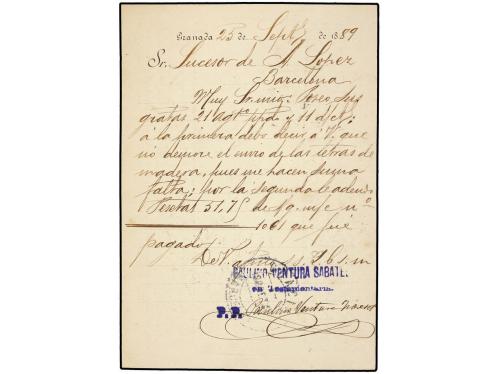 Granada 25 de Sept. de 1889
Sr. Sucesor de A. Lopez
Barcelona
Muy Sr. mio: Poseo sus
gratas 21 Agto ppdo y 11 dct;
á la primera debo decir á V. que
no demore el envio de las letras de
madera, pues me hacen suma
falta; por la segunda le adeudo
Pesetas 51,75 de s/g. m/c nº
1061 que fué
pagado.
De V. S. S.
PAULINO VENTURA SABATEL
en Testamentaría.
P. P. Paulino Ventura